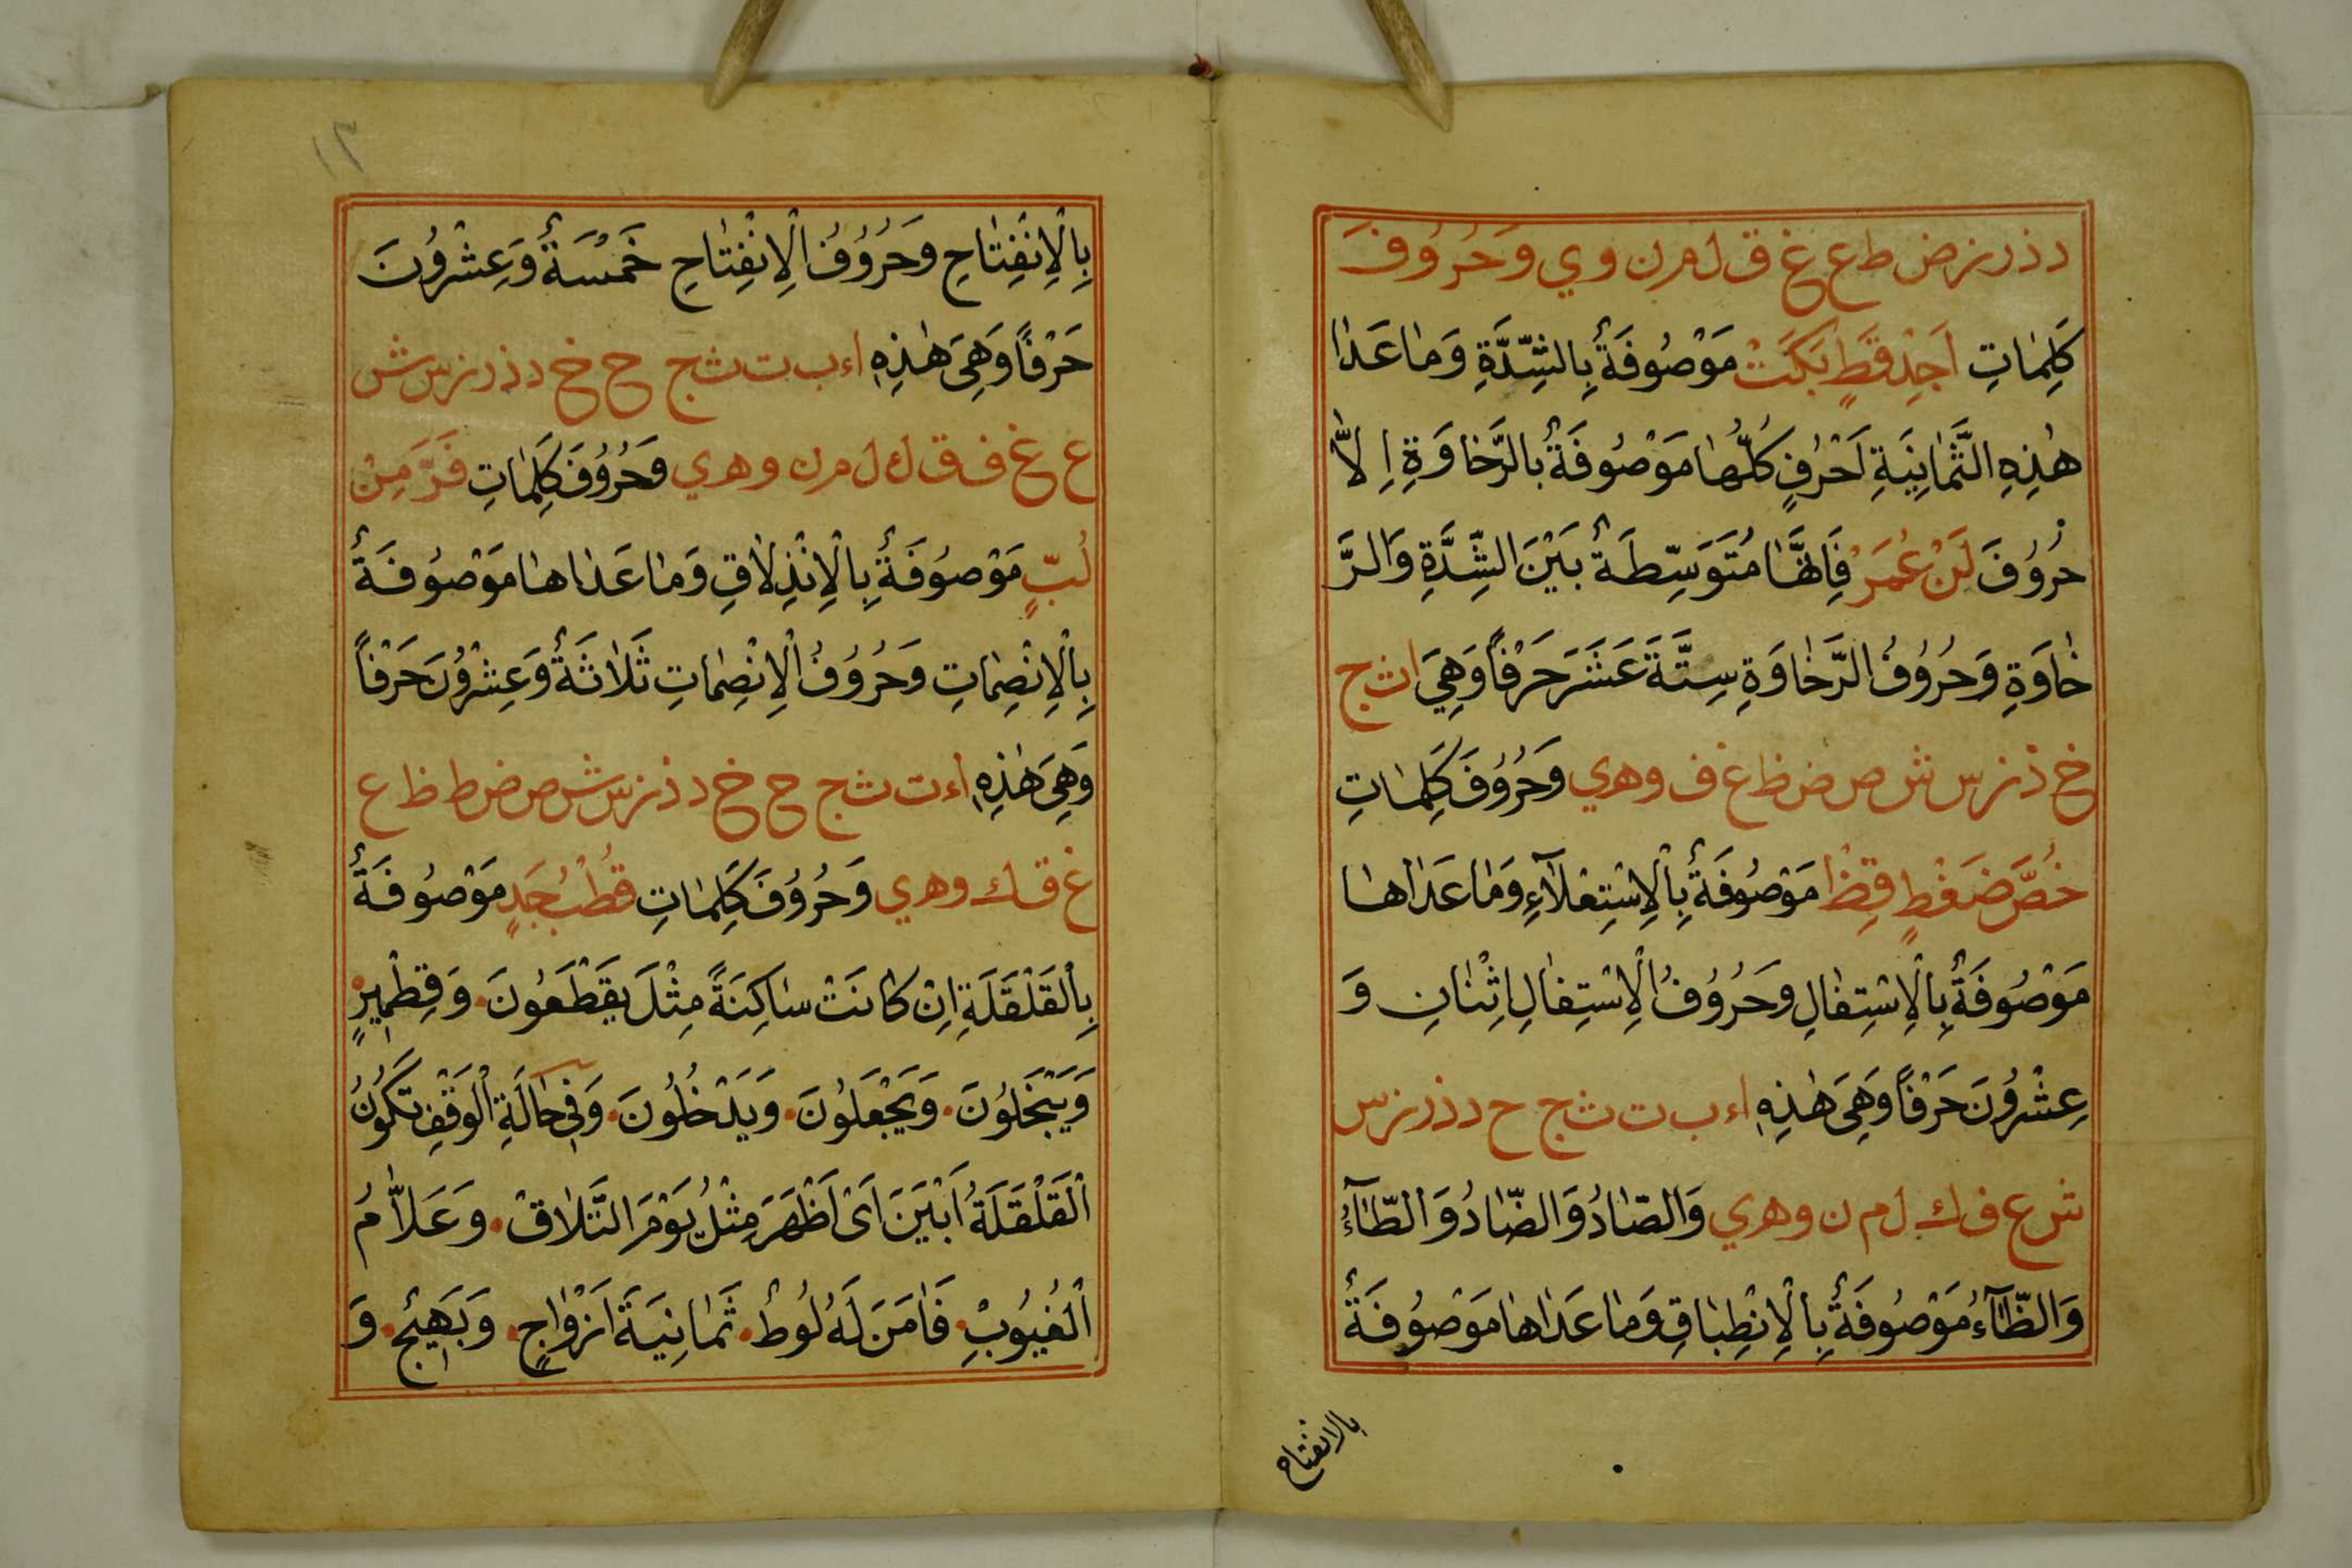 د ذ ر ز ض ط ع غ ق ل م ن و ي وَحُرُوُفَ
كَلِمٰاتِ اَجِدْ قَطٍ بَكَتْ مَوْصُوفَةٌ بِالشِّدَّةِ وَمٰا عَدٰا
هٰذِهِ الثَّمٰانِيَةِ اَحْرُفٍ كُلُّهٰا مَوْصُوفَةٌ بالرَّخاوَةِ اِلاّٰ
حُرُوُفَ لَنْ عُمَرْ فَاِنَّهٰا مُتَوَسِّطَةٌ بَيْنَ الشِّدَّةِ وَالرَّ
خٰاوَةِ وَحُرُوُفُ الرَّخٰاوَةِ سِتَّةَ عَشَرَ حَرْفاً وَهِيَ ا ث ح
خ ذ ز س ش ص ض ظ غ ف و ه ي وَحُرُوُفَ كَلِمٰاتِ
خُصَّ ضَغْطٍ قِظْ مَوْصُوفَةٌ بِالْاِسْتِعْلآءِ وَمٰا عَدٰاهٰا
مَوْصُوفَةٌ بِالْاِسْتِفٰالِ وَحُرُوُفُ الْاِسْتِفٰالِ اِثْنٰانِ وَ
عِشْرُوُنَ حَرْفاً وَهِىَ هٰذِهِ ا ء ب ت ث ج ح د ذ ر ز س
ش ع ف ك ل م ن و ه ي وَالصّٰادُ وَالضّٰادُ وَالطّٰآءُ
وَالظّٰآءُ مَوْصُوفَةٌ بِالْاِنْطِبٰاقِ وَمٰا عَدٰاهٰا مَوْصُوفَةٌ
بالانفتاح
١٣
بِالْاِنْفِتٰاحِ وَحُرُوُفُ الْاِنْفِتٰاحِ خَمْسَةٌ وَعِشْرُوُنَ
حَرْفاً وَهِىَ هٰذِهِ ا ء ب ت ث ج ح خ د ذ ر ز س ش
ع غ ف ق ك ل م ن و ه ي وَحُرُوُفَ كَلِمٰاتِ فَرَّ مِنْ
لُبٍّ مَوْصُوفَةٌ بِالْاِنْذِلاٰقِ وَمٰا عَدٰاهٰا مَوْصُوفَةٌ
بِالْاِنْصِمٰاتِ وَحُرُوُفُ الْاِنْصِمٰاتِ ثَلاٰثَةٌ وَعِشْرُوُنَ حَرْفاً
وَهِىَ هٰذِهِ ا ء ت ث ج ح خ د ذ ز س ش ص ض ط ظ ع
غ ق ك و ه ي وَحُرُوُفَ كَلِمٰاتِ قُطْبُ جَدٍ مَوْصُوفَةٌ
بِالْقَلْقَلَةِ اِنْ كٰانَتْ سٰاكِنَةً مِثْلَ يَقْطَعُونَ. وَقِطْمِيرٍ
وَيَبْخَلُوُنَ. وَيَجْعَلُوُنَ. وَيَدْخُلُونَ. وَفِى حٰالَةِ الْوَقْفِ تَكُونُ
الْقَلْقَلَةُ اَبْيَنَ اَىْ اَظْهَرَ مِثْلُ يَوْمَ التَّلاٰقْ. وَعَلاّٰمُ
الْغُيُوبْ. فَاٰمَنَ لَهُ لُوطْ. ثَمٰانِيَةَ اَزْوٰاجٍ. وَبَهِيْجٍ. وَ